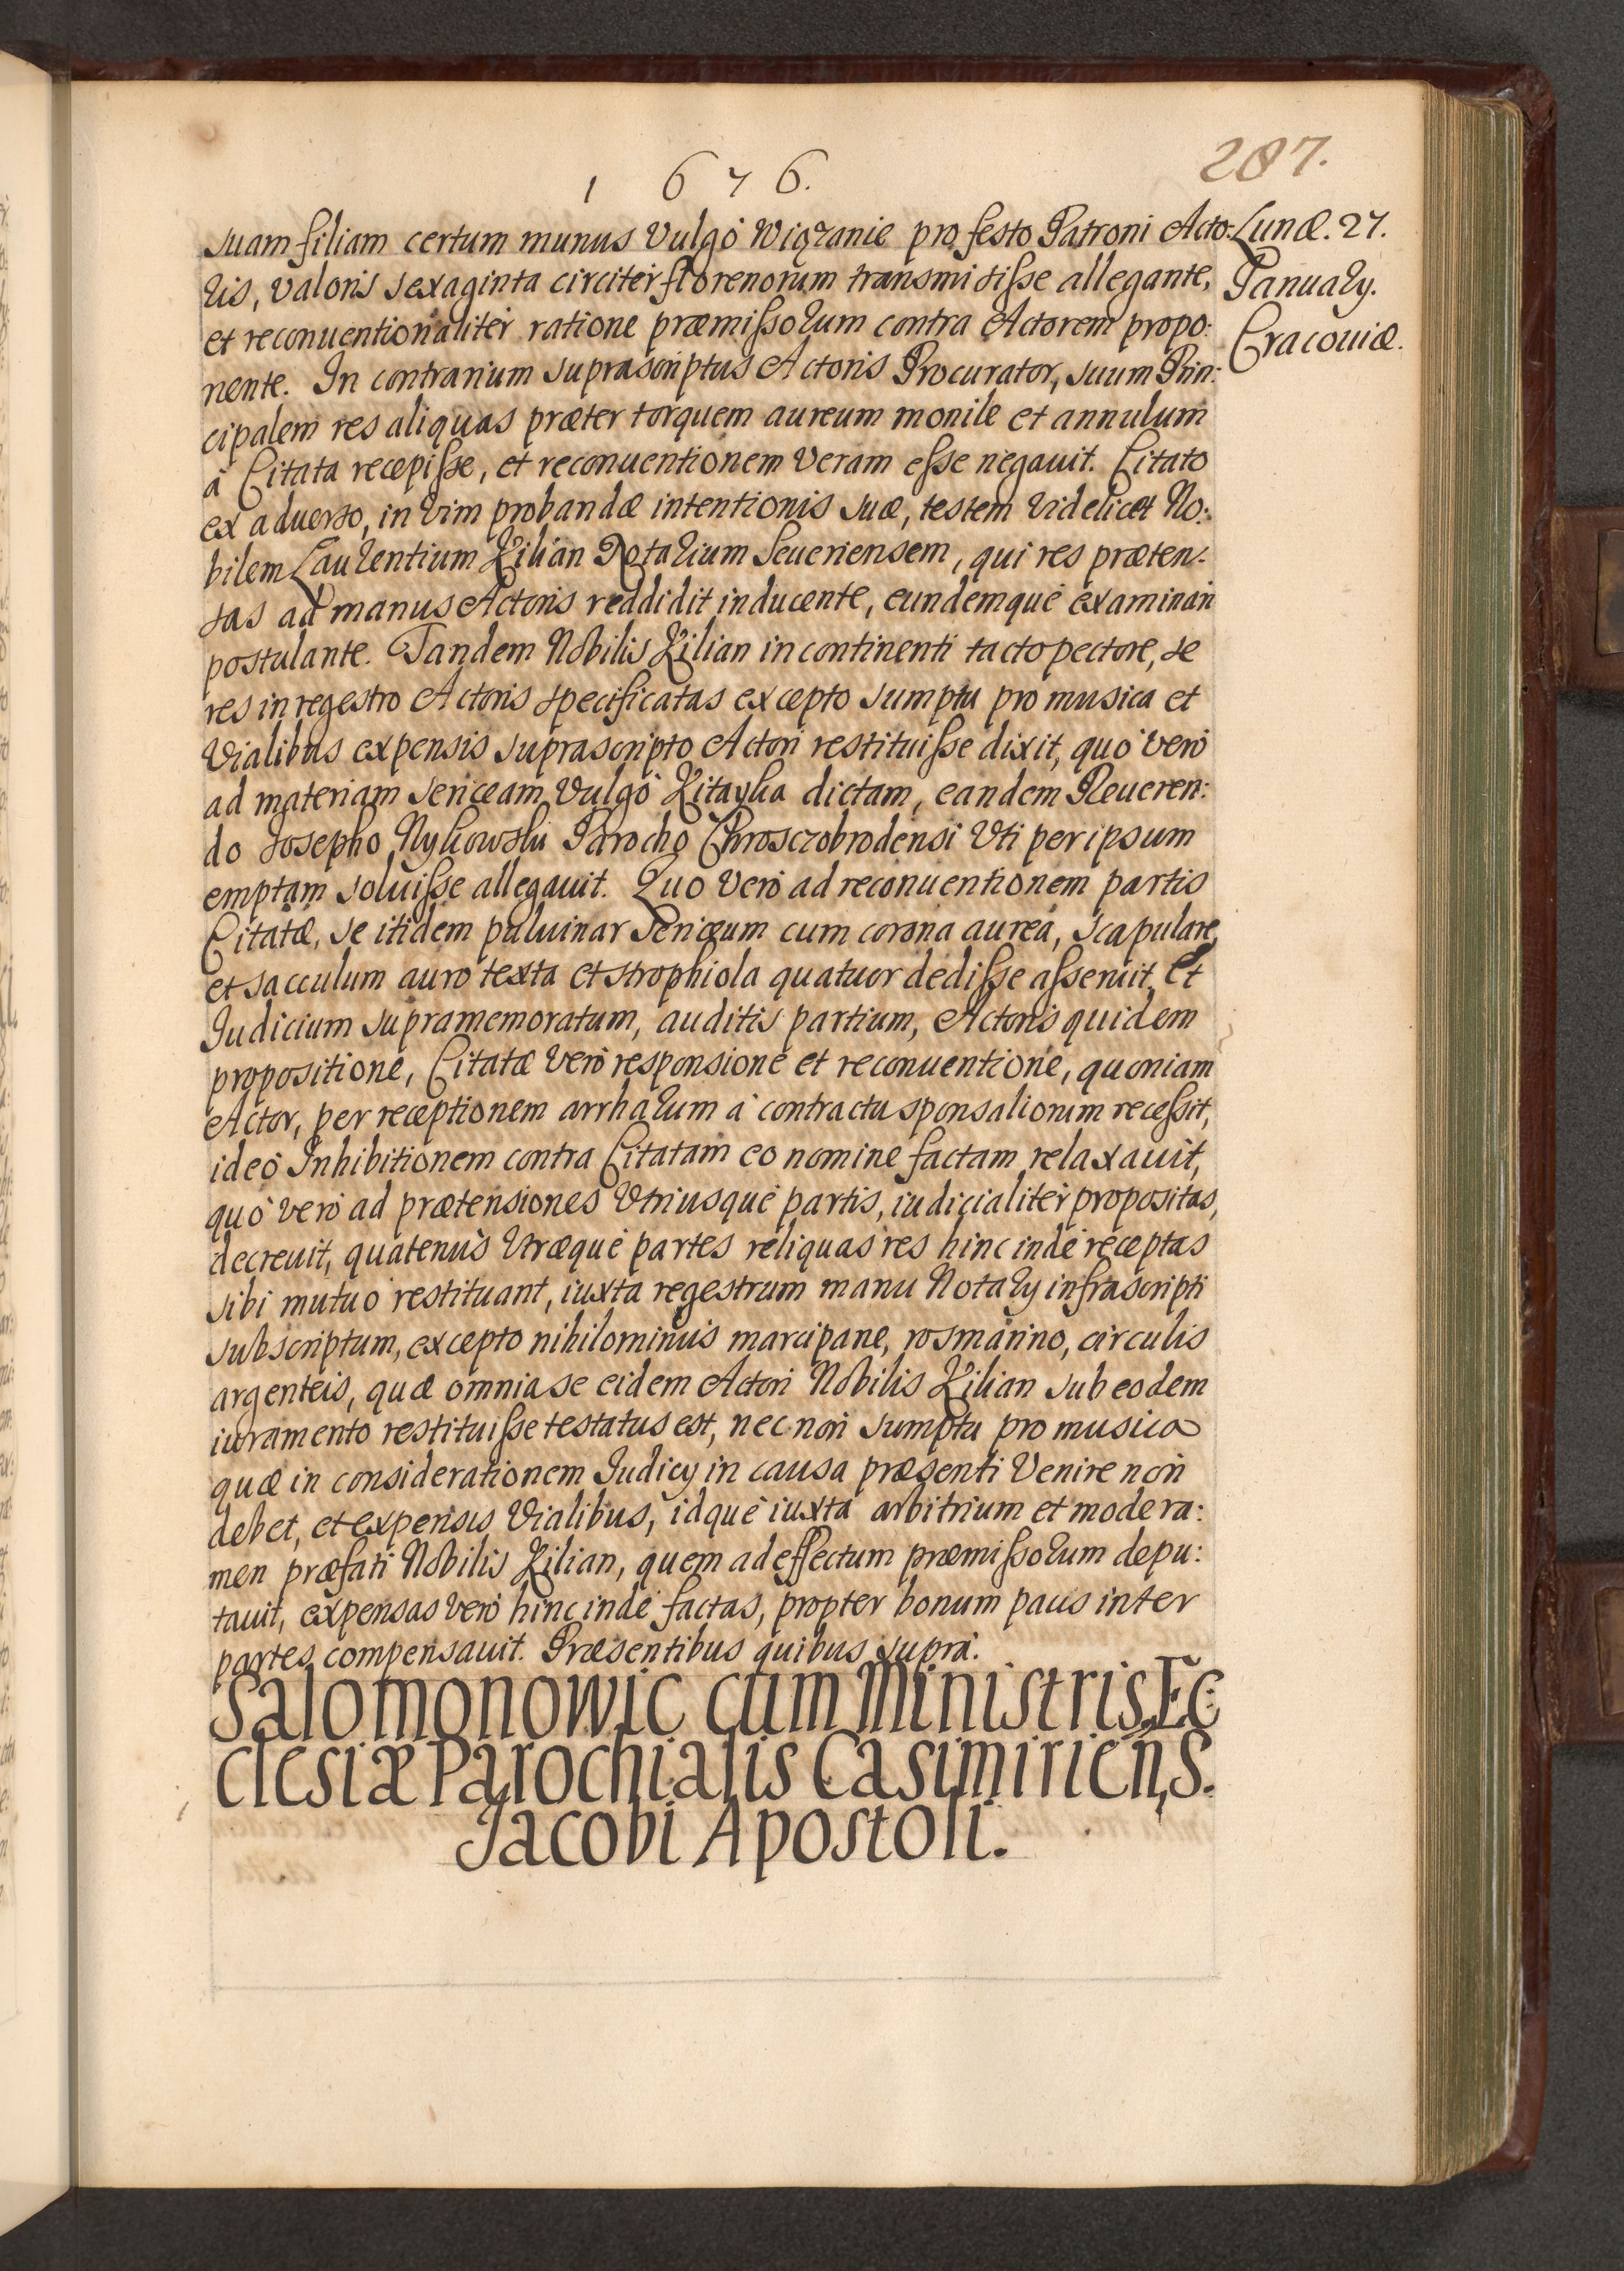 1676.
287.
suam filiam certum munus Vulgò Wiązanie pro festo Patroni Acto:
ris, valoris sexaginta circiter florenorum transmisisse allegante,
et reconuentionaliter ratione præmissorum contra Actorem propo:
nente. In contrarium suprascriptus Actoris Procurator, suum Prin:
cipalem res aliquas præter torquem aureum monile et annulum
à Citata recepisse, et reconuentionem veram esse negauit. Citato
ex aduerso, in vim probandæ intentionis suæ, testem videlicet No:
bilem Laurentium Kilian Notarium Seueriensem, qui res præten:
sas ad manus Actoris reddidit inducente, eundemque examinari
postulante. Tandem Nobilis Kilian in continenti tacto pectore, se
res in regestro Actoris specificatas excepto sumptu pro musica et
Vialibus expensis suprascripto Actori restituisse dixit, quò verò
ad materiam sericeam Vulgò Kitayka dictam, eandem Reueren:
do Josepho Nykowski Parocho Chrosczobrodensi Vti per ipsum
emptam soluisse allegauit. Quo verò ad reconuentionem partis
Citatæ, se itidem puluinar sericeum cum corona aurea, scapulare,
et sacculum auro texta et strophiola quatuor dedisse asseruit. Et
Iudicium supramemoratum, auditis partium, Actoris quidem
propositione, Citatæ verò responsione et reconuentione, quoniam
Actor, per receptionem arrharum à contractu sponsaliorum recessit,
ideò Inhibitionem contra Citatam eo nomine factam relaxauit,
quò verò ad prætensiones Vtriusque partis, iudicialiter propositas,
decreuit, quatenus Vtræque partes reliquas res hinc inde receptas
sibi mutuò restituant, iuxta regestrum manu Notarij infrascripti
subscriptum, excepto nihilominus marcipane, rosmarino, circulis
argenteis, quæ omnia se eidem Actori Nobilis Kilian sub eodem
iuramento restituisse testatus est, nec non sumptu pro musica
quæ in considerationem Iudicij in causa præsenti Venire non
debet, et expensis Vialibus, idque iuxta arbitrium et modera:
men præfati Nobilis Kilian, quem ad effectum præmissorum depu:
tauit, expensas verò hinc inde factas, propter bonum pacis inter
partes compensauit. Præsentibus quibus suprà.
Salomonowic cum Ministris Ec
clesiæ Parochialis Casimiriens.
Jacobi Apostoli.
Lunæ. 27.
Januarij.
Cracouiæ.